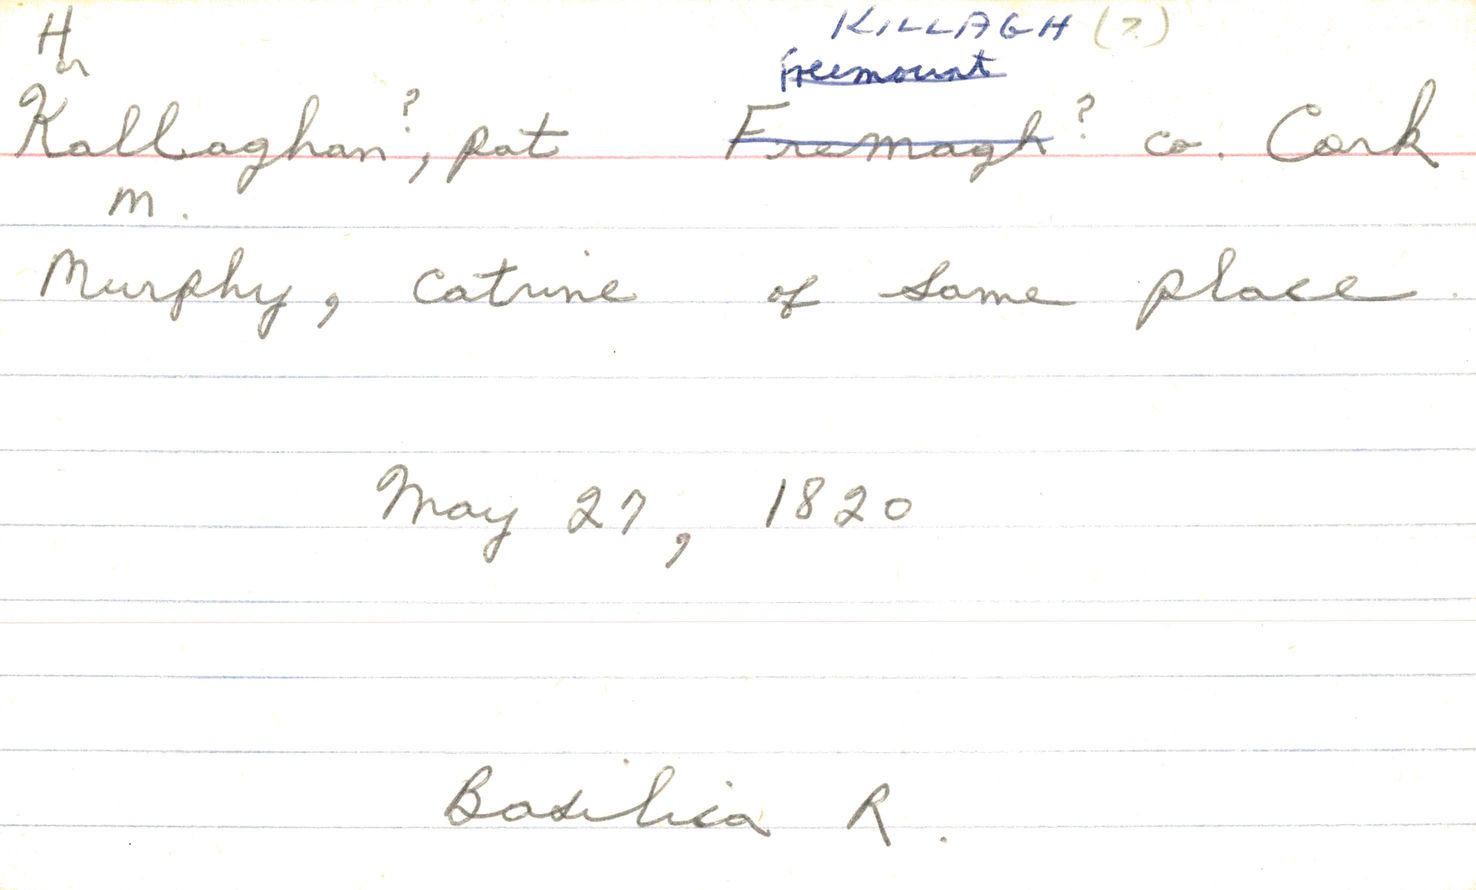 H KILLAGH (?)
or freemount
Kallaghan?, pat Fremagh? co. Cork
m.
Murphy, Catrine of same place.
May 27, 1820
Basilica R.